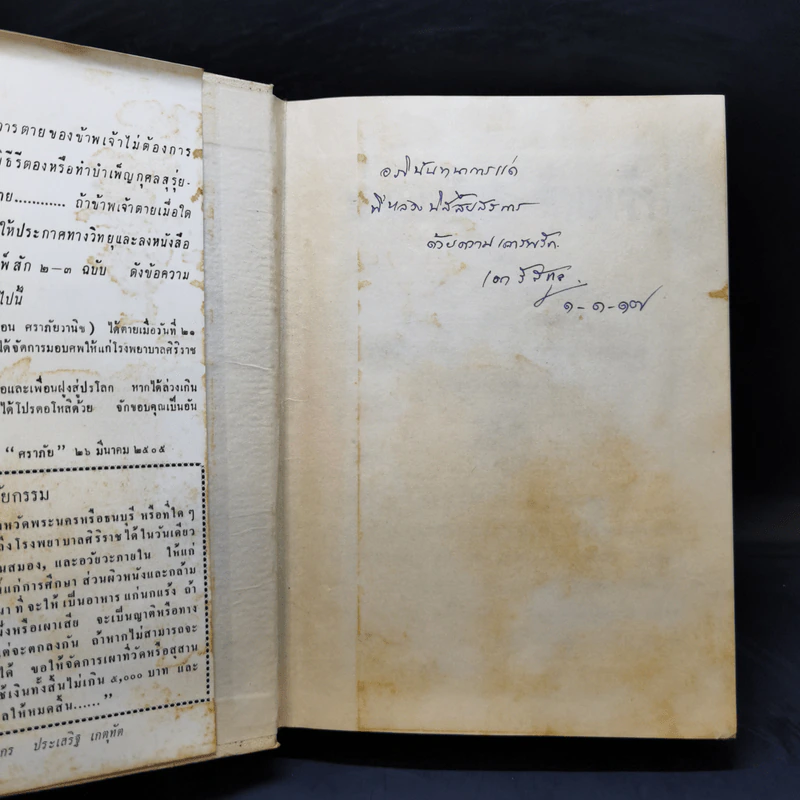 การตายของข้าพเจ้าไม่ต้องการ
พิธีรีตองหรือทำบำเพ็ญกุศลสุรุ่ย-
ถ้าข้าพเจ้าตายเมื่อใด
ให้ประกาศทางวิทยุและลงหนังสือ
พ์สัก ๒-๓ ฉบับ ดังข้อความ
ไปนี้
อน ศราภัยวานิช) ได้ตายเมื่อวันที่ ๒๑
ได้จัดการมอบศพให้แก่โรงพยาบาลศิริราช
อและเพื่อนฝูงสู่ปรโลก หากได้ล่วงเกิน
ได้โปรดอโหสิด้วย จักขอบคุณเป็นอัน
“ศราภัย” ๒๖ มีนาคม ๒๕๐๕
ัยกรรม
งหวัดพระนครหรือธนบุรี หรือที่ใดๆ
ถึงโรงพยาบาลศิริราชได้ในวันเดียว
นสมอง, และอวัยวะภายใน ให้แก่
แก่การศึกษา ส่วนผิวหนังและกล้าม
นา ที่จะให้เป็นอาหารแก่นกแร้ง ถ้า
ฝังหรือเผาเสีย จะเป็นญาติหรือทาง
แต่จะตกลงกัน ถ้าหากไม่สามารถจะ
ได้ ขอให้จัดการเผาที่วัดหรือสุสาน
ใช้เงินทั้งสิ้นไม่เกิน ๕,๐๐๐ บาท และ
ลให้หมดสิ้น......”
กร ประเสริฐ เกตุทัต
อภินันทนาการแด่
พี่หลวง
ด้วยความเคารพรัก
๑-๑-๑๗